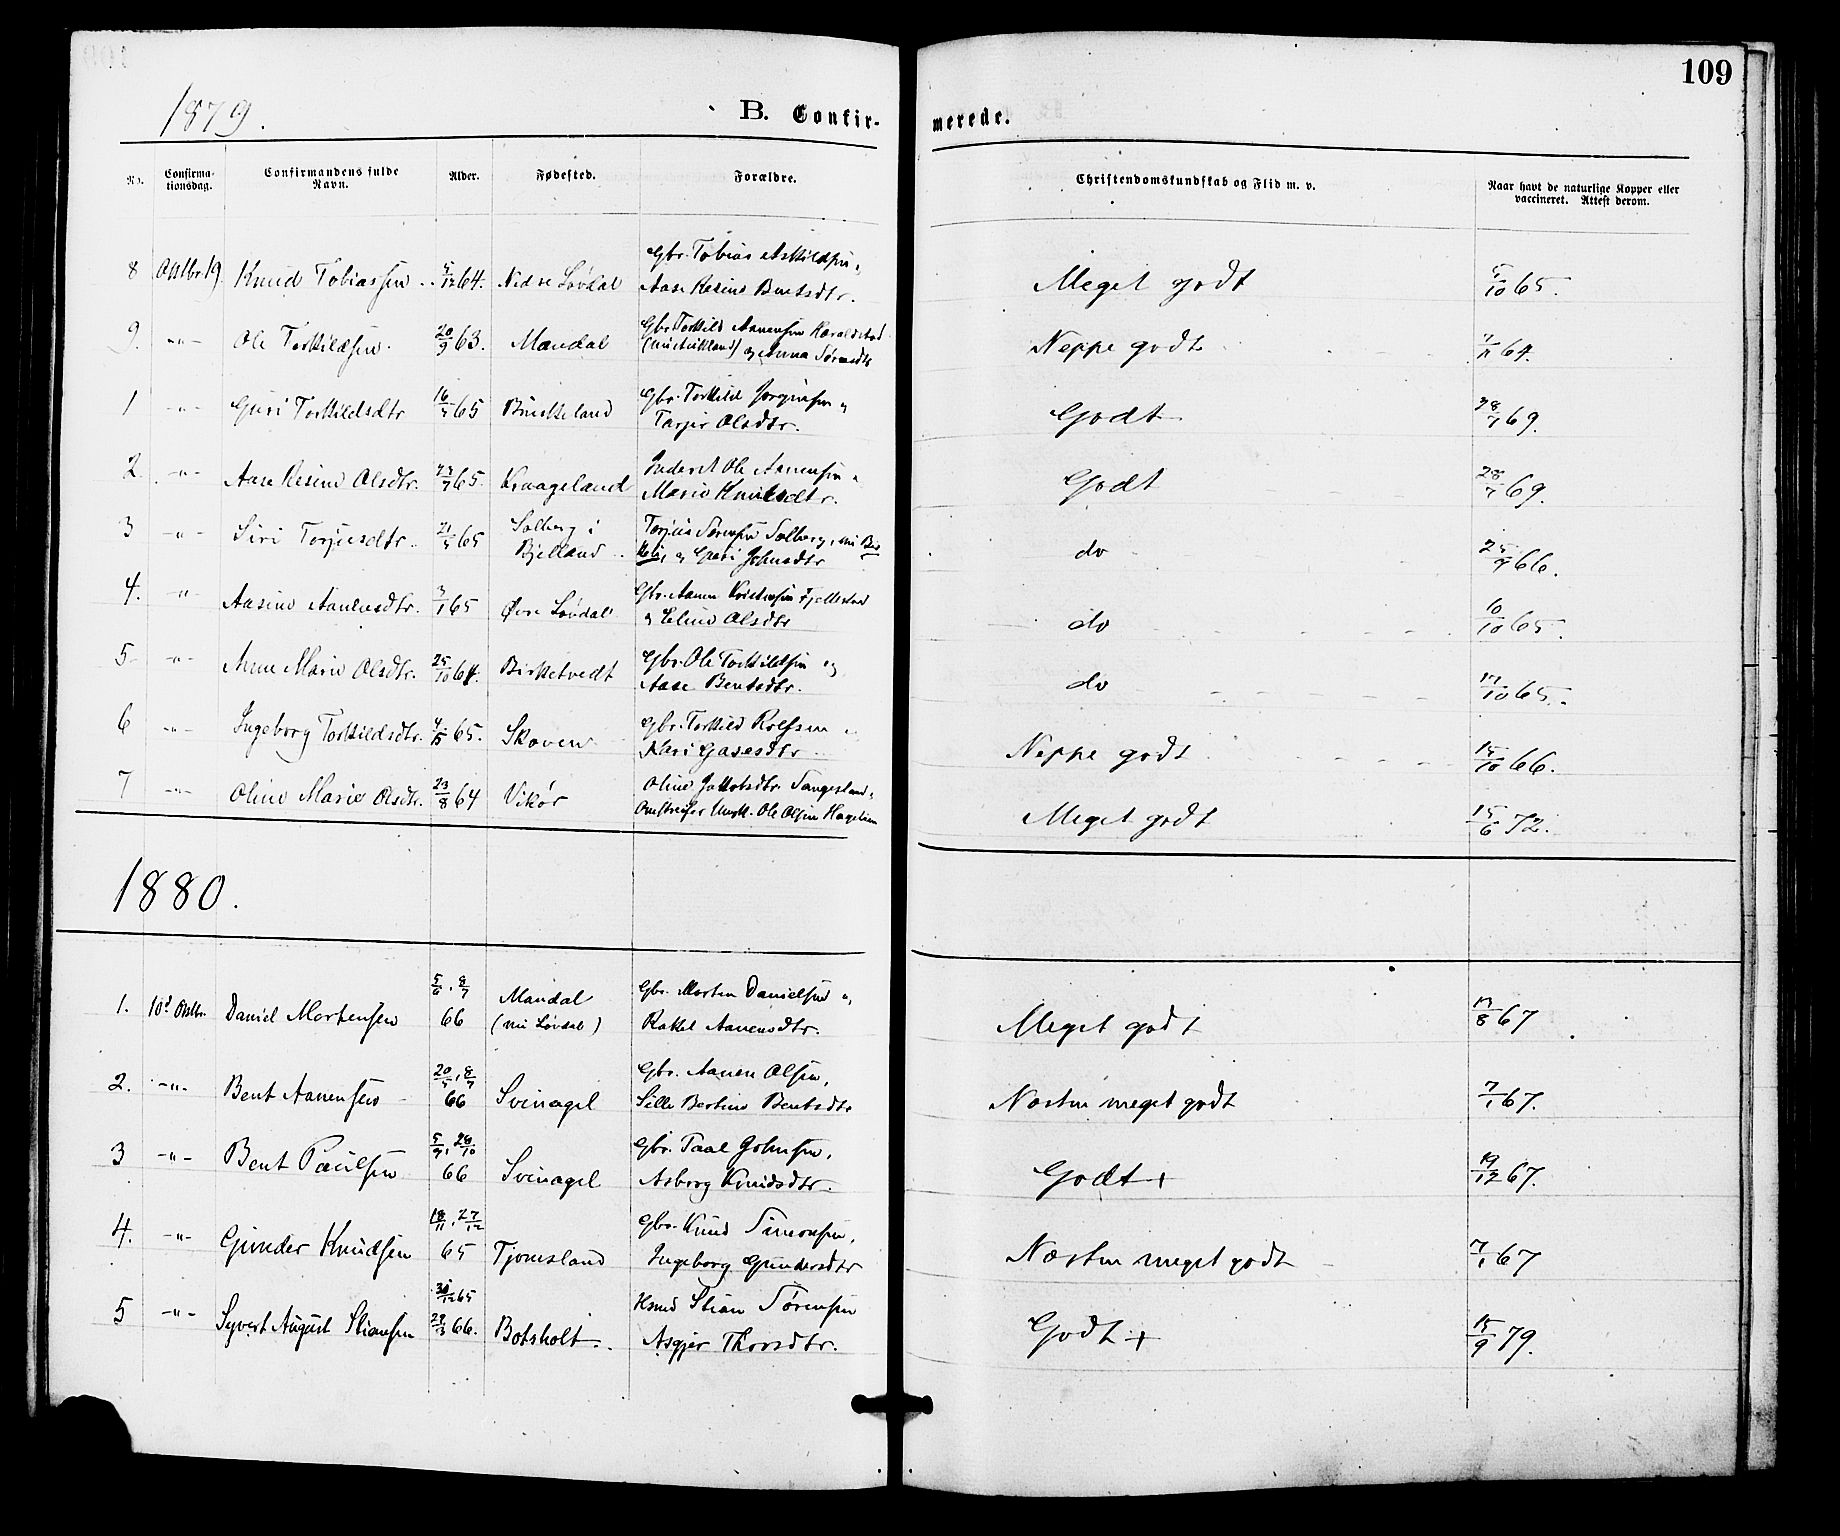 109
1879.
B. Confirmerede.
No. Confirmationsdag. Confirmandens fulde Navn. Alder. Fødested. Forældre. Christendomskundskab og Flid m. v. Naar havt de naturlige Kopper eller vaccineret. Attest derom.
8 Oktbr. 19. Knud Tobiassen 5/12 64. Nedre Løvdal Gbr. Tobias Askildsen, Aase Resine Bentsdtr. Meget godt 5/10 65.
9. -"- Ole Torkildsen. 20/9 63. Mandal Gbr. Torkild Aanensen Haraldstad (nu Aukland) og Anna Sørensdtr Neppe godt 7/11 64.
1 -"- Guri Torkildsdtr 16/5 65 Birkeland Gbr. Torkild Jørgensen og Tarjer Olsdtr. Godt 28/7 69.
2. -"- Aase Resine Olsdtr. 23/7 65. Kraageland Inderst Ole Aanensen, Marie Knudsdtr. Godt 28/7 69.
3 -"- Siri Torjusdtr. 21/5 65 Solberg i Bjelland Torjus Sørensen Solberg, nu og Guri Johnsdtr do 25/9 66.
4. -"- Aasine Aanensdtr. 3/1 65 Øvre Løvdal Gbr. Aanen Kristensen Fjellestad og Eline Olsdtr do 10/10 65.
5 -"- Anne Marie Olsdtr. 25/10 64. Birketvedt Gbr. Ole Torkildsen og Aase Bentsdtr. do 17/10 65.
6 -"- Ingeborg Torkildsdtr. 65. Skoven Gbr. Torkild Rolfsen, Kari Gasesdtr Neppe godt 15/10 66.
7 -"- Oline Marie Olsdtr. 23/8 64 Vikør Oline Jakobsdtr. Tangesland, Omstreifer Ungk. Ole Olsen Hagelien Meget godt 15/6 72.
1880.
1. 10d Oktbr. Daniel Mortensen 5/6, 8/7 66 Mandal (nu Løvdal) Gbr. Morten Danielsen og Rakel Aanensdtr. Meget godt 17/8 67
2. -"- Bent Aanensen 20/5, 8/7 66 Svinagel Gbr. Aanen Olsen, Sille Bertine Bentsdtr Næsten meget godt 7/1 67.
3 -"- Bent Paulsen 5/9, 28/10 66 Svinagel Gbr. Paal Johnsen, Asborg Knudsdtr. Godt + 19/12 67.
4. -"- Gunder Knudsen 18/11, 27/12 65 Tjomsland Gbr. Knud Simonsen, Ingeborg Gundersdtr Næsten meget godt 7/1 67
5 -"- Syvert August Stiansen 30/12 65 29/3 66. Botsholt Husmd Stian Sørensen Asgjer Thorsdtr. Godt + 15/9 79.